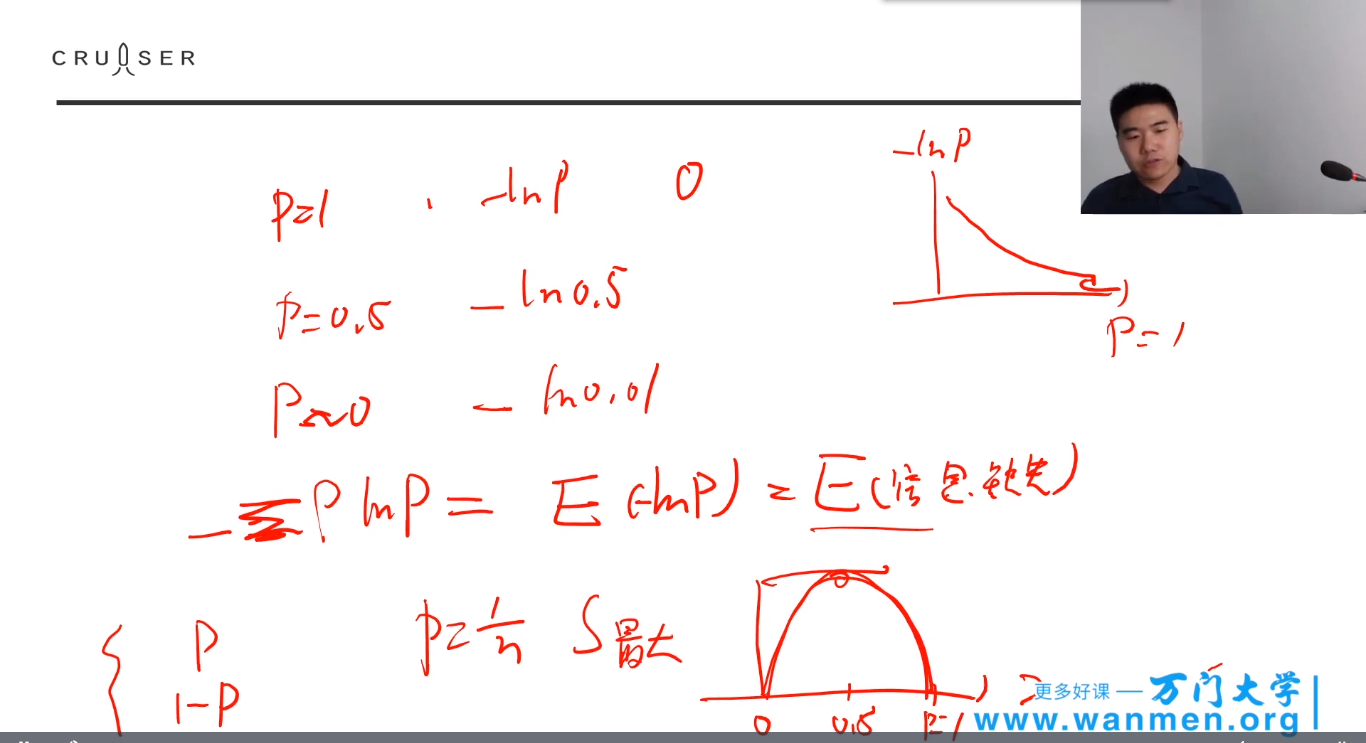 CRUISER
-lnP
P=1 -lnP 0
P=0.5 -ln0.5
P=1
P≈0 -ln0.01
-ΣPlnP = E(-lnP) = E(信息缺失)
P=1/n S最大
{ P
1-P
0 0.5 P=1
更多好课 — 万门大学
www.wanmen.org